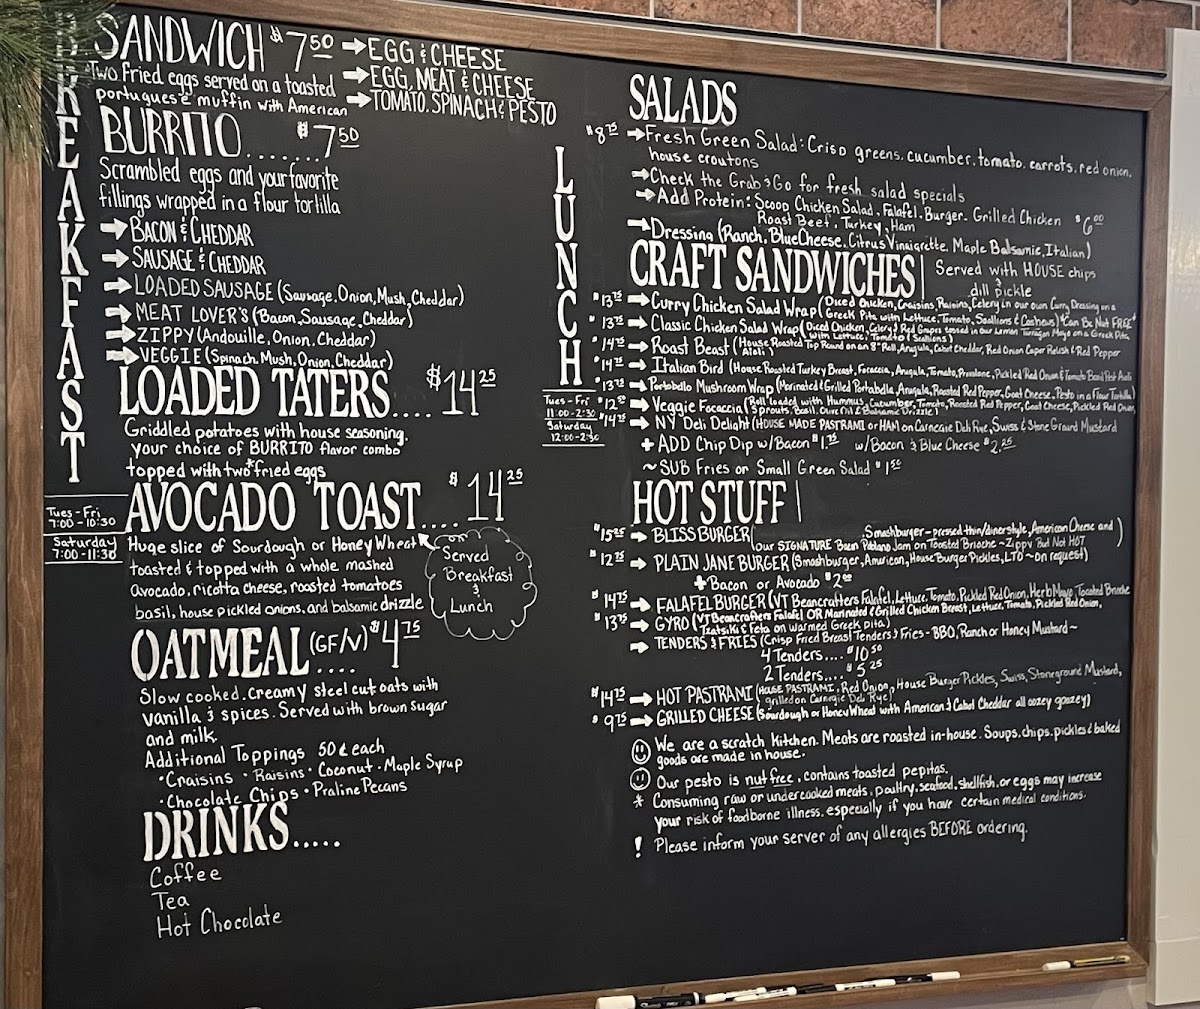 BREAKFAST
SANDWICH $7.50
→ EGG & CHEESE
→ EGG, MEAT & CHEESE
→ TOMATO, SPINACH & PESTO
Two Fried eggs served on a toasted
portuguese muffin with American
BURRITO.......$7.50
Scrambled eggs and your favorite
fillings wrapped in a flour tortilla
→ BACON & CHEDDAR
→ SAUSAGE & CHEDDAR
→ LOADED SAUSAGE (Sausage, Onion, Mush, Cheddar)
→ MEAT LOVER'S (Bacon, Sausage, Cheddar)
→ ZIPPY (Andouille, Onion, Cheddar)
→ VEGGIE (Spinach, Mush, Onion, Cheddar)
LOADED TATERS.... $14.25
Griddled potatoes with house seasoning.
your choice of BURRITO flavor combo
topped with two *fried eggs
Tues - Fri
7:00 - 10:30
Saturday
7:00 - 11:30
AVOCADO TOAST.... $14.25
Huge slice of Sourdough or Honey Wheat
toasted & topped with a whole mashed
avocado, ricotta cheese, roasted tomatoes
basil, house pickled onions, and balsamic drizzle
Served
Breakfast
&
Lunch
OATMEAL (GF/V) .... $4.75
Slow cooked, creamy steel cut oats with
vanilla & spices. Served with brown sugar
and milk.
Additional Toppings 50¢ each
• Craisins • Raisins • Coconut • Maple Syrup
• Chocolate Chips • Praline Pecans
DRINKS.....
Coffee
Tea
Hot Chocolate
LUNCH
Tues - Fri
11:00 - 2:30
Saturday
12:00 - 2:30
SALADS
$8.75 → Fresh Green Salad: Crisp greens, cucumber, tomato, carrots, red onion,
house croutons
→ Check the Grab & Go for fresh salad specials
→ Add Protein: Scoop Chicken Salad, Falafel, Burger, Grilled Chicken $6.00
Roast Beef, Turkey, Ham
→ Dressing (Ranch, Blue Cheese, Citrus Vinaigrette, Maple Balsamic, Italian)
CRAFT SANDWICHES | Served with HOUSE chips
& dill pickle
$13.75 → Curry Chicken Salad Wrap (Diced Chicken, Craisins, Raisins, Celery in our own Curry Dressing on a
Greek Pita with Lettuce, Tomato, Scallions & Cashews) *Can Be Nut FREE*
$13.75 → Classic Chicken Salad Wrap (Diced Chicken, Celery & Red Grapes tossed in our Lemon Tarragon Mayo on a Greek Pita,
with Lettuce, Tomato & Scallions)
$14.75 → Roast Beast (House Roasted Top Round on an 8" Roll, Arugula, Cabot Cheddar, Red Onion Caper Relish & Red Pepper
Aioli)
$14.75 → Italian Bird (House Roasted Turkey Breast, Focaccia, Arugula, Tomato, Provolone, Pickled Red Onion & Tomato Basil Pesto Aioli)
$13.75 → Portobello Mushroom Wrap (Marinated & Grilled Portabella, Arugula, Roasted Red Pepper, Goat Cheese, Pesto in a Flour Tortilla)
$12.75 → Veggie Focaccia (Roll loaded with Hummus, Cucumber, Tomato, Roasted Red Pepper, Goat Cheese, Pickled Red Onion,
Sprouts, Basil, Olive Oil & Balsamic Drizzle)
$14.75 → NY Deli Delight (HOUSE MADE PASTRAMI or HAM on Carnegie Deli Rye, Swiss & Stone Ground Mustard
+ ADD Chip Dip w/Bacon $1.75 w/Bacon & Blue Cheese $2.25
~ SUB Fries or Small Green Salad $1.50
HOT STUFF |
$15.25 → BLISS BURGER ( Smashburger - pressed thin/diner style, American Cheese and
Our SIGNATURE Bacon Poblano Jam on Toasted Brioche ~ Zippy But Not HOT )
$12.75 → PLAIN JANE BURGER (Smashburger, American, House Burger Pickles, LTO ~ on request)
+ Bacon or Avocado $2.00
$14.75 → FALAFEL BURGER (VT Beancrafters Falafel, Lettuce, Tomato, Pickled Red Onion, Herb Mayo, Toasted Brioche
$13.75 → GYRO (VT Beancrafters Falafel OR Marinated & Grilled Chicken Breast, Lettuce, Tomato, Pickled Red Onion,
Tzatsiki & Feta on Warmed Greek pita)
→ TENDERS & FRIES (Crisp Fried Breast Tenders & Fries - BBQ, Ranch or Honey Mustard ~
4 Tenders.... $10.50
2 Tenders.... $5.25
$14.75 → HOT PASTRAMI (HOUSE PASTRAMI, Red Onion, House Burger Pickles, Swiss, Stoneground Mustard,
grilled on Carnegie Deli Rye)
$9.75 → GRILLED CHEESE (Sourdough or Honey Wheat with American & Cabot Cheddar all oozey goozey)
☺ We are a scratch kitchen. Meats are roasted in-house. Soups, chips, pickles & baked
goods are made in house.
☺ Our pesto is nut free, contains toasted pepitas.
* Consuming raw or undercooked meats, poultry, seafood, shellfish, or eggs may increase
your risk of foodborne illness, especially if you have certain medical conditions.
! Please inform your server of any allergies BEFORE ordering.